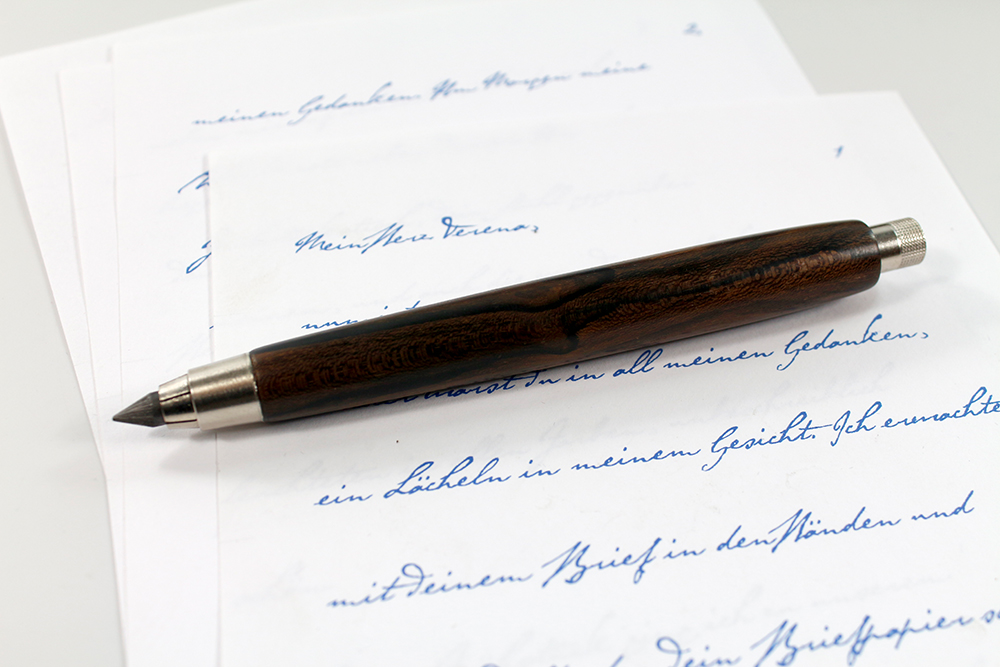 2,
meinen Gedanken. Am Morgen meine
1
Mein Herz Verena,
warst du in all meinen Gedanken,
ein Lächeln in meinem Gesicht. Ich erwachte
mit deinem Brief in den Händen und
dein Briefpapier